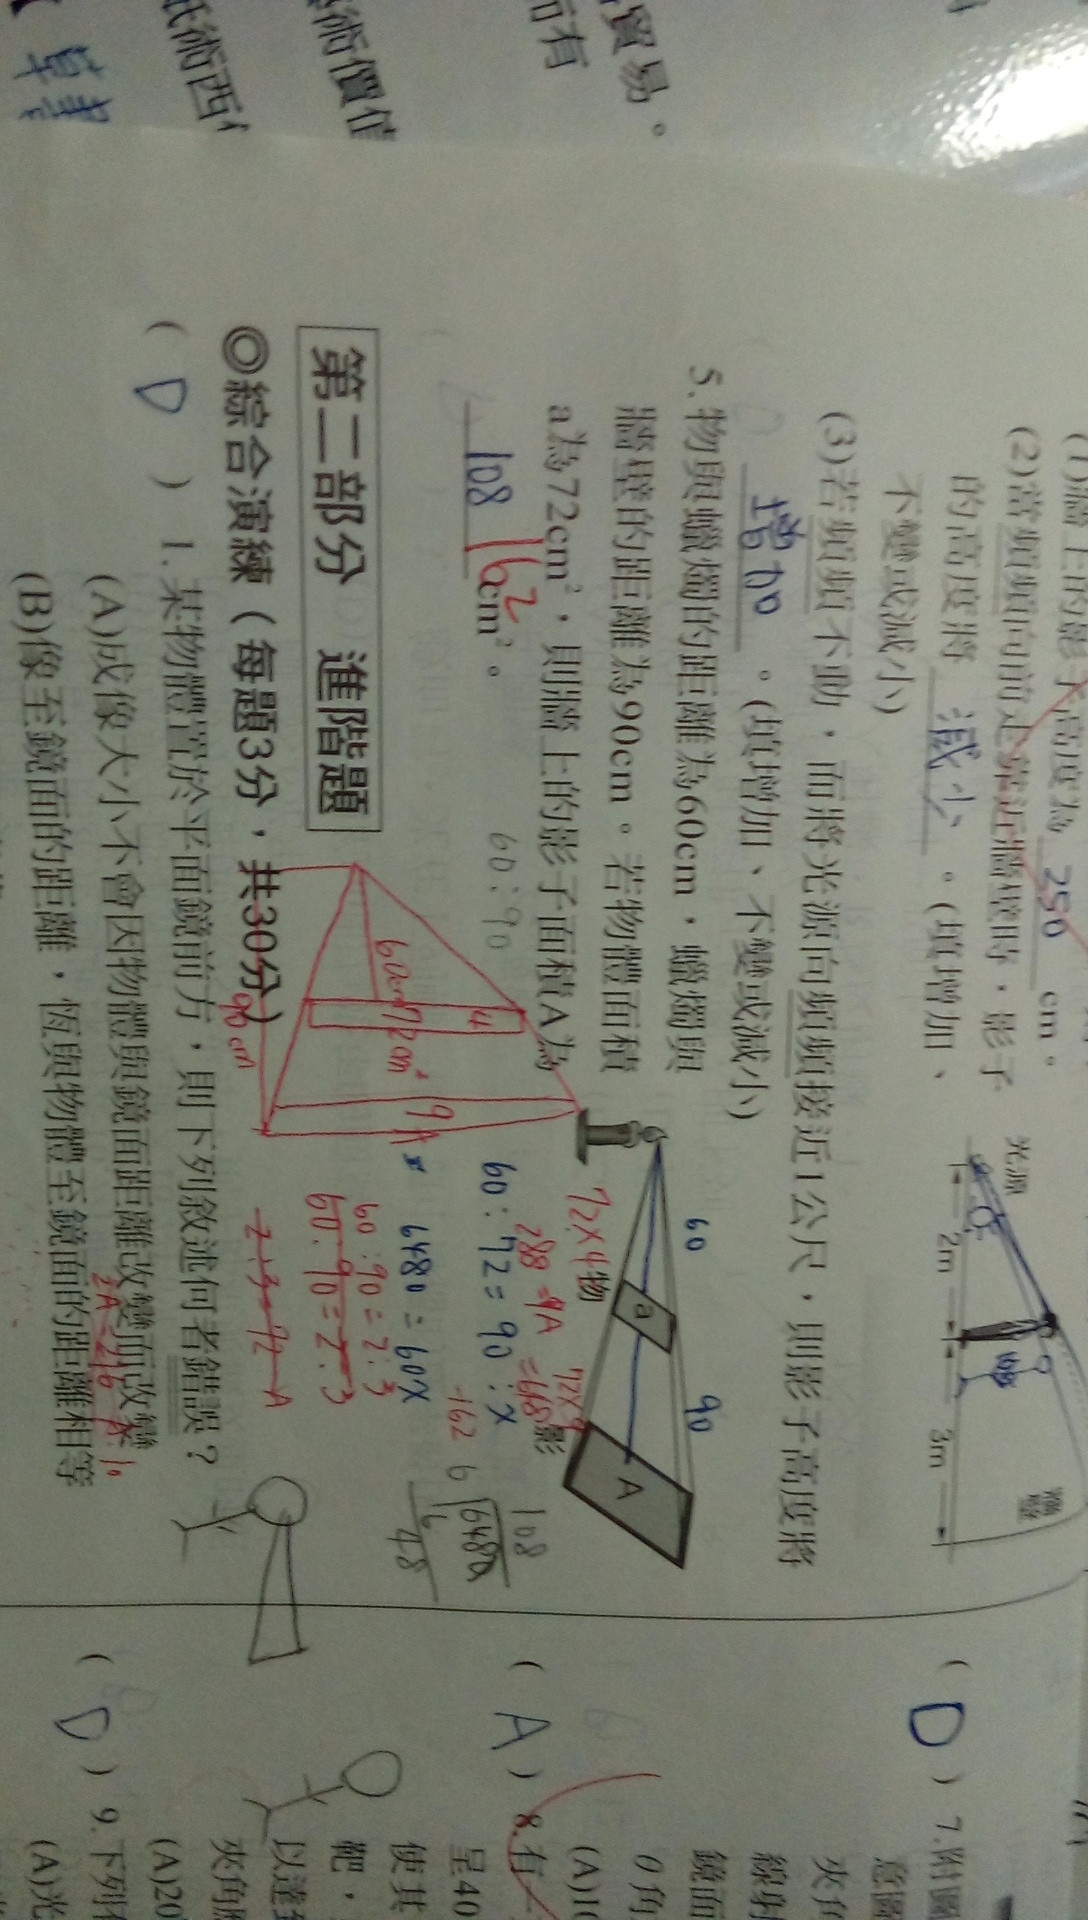 貿易。
而有
術價值
術西
(1)牆上的影子高度為 250 cm。
(2)當頻頻向前走靠近牆壁時，影子
的高度將 減少 。(填增加、
不變或減小)
(3)若頻頻不動，而將光源向頻頻接近1公尺，則影子高度將
增加 。(填增加、不變或減小)
光源
2m
3m
牆壁
5.物與蠟燭的距離為60cm，蠟燭與
牆壁的距離為90cm。若物體面積
a為72cm²，則牆上的影子面積A為
108 162 cm²。
60
90
a
A
物
影
60:90
72×4
72×9
288=4A
=648
162
60:72=90:x
6480=60x
60:90=2:3
60:90=2:3
2:3=72:A
108
6
6480
6
48
60cm
72cm²
4
9
A
90cm
第二部分 進階題
◎綜合演練（每題3分，共30分）
( D ) 1.某物體置於平面鏡前方，則下列敘述何者錯誤？
(A)成像大小不會因物體與鏡面距離改變而改變
(B)像至鏡面的距離，恆與物體至鏡面的距離相等
( D ) 7.附圖
意圖
夾角
線射
鏡面
θ角
(A)10
( A ) 8.有一
呈40
使其
靶，
以達到
夾角應
(A)20
( D ) 9.下列
(A)光